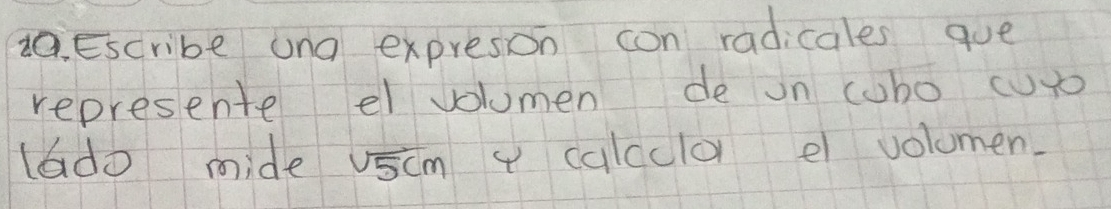 10. Escribe una expresón con radicales que
represente el volumen de un cubo cuyo
lado mide √5cm y calcula el volumen.